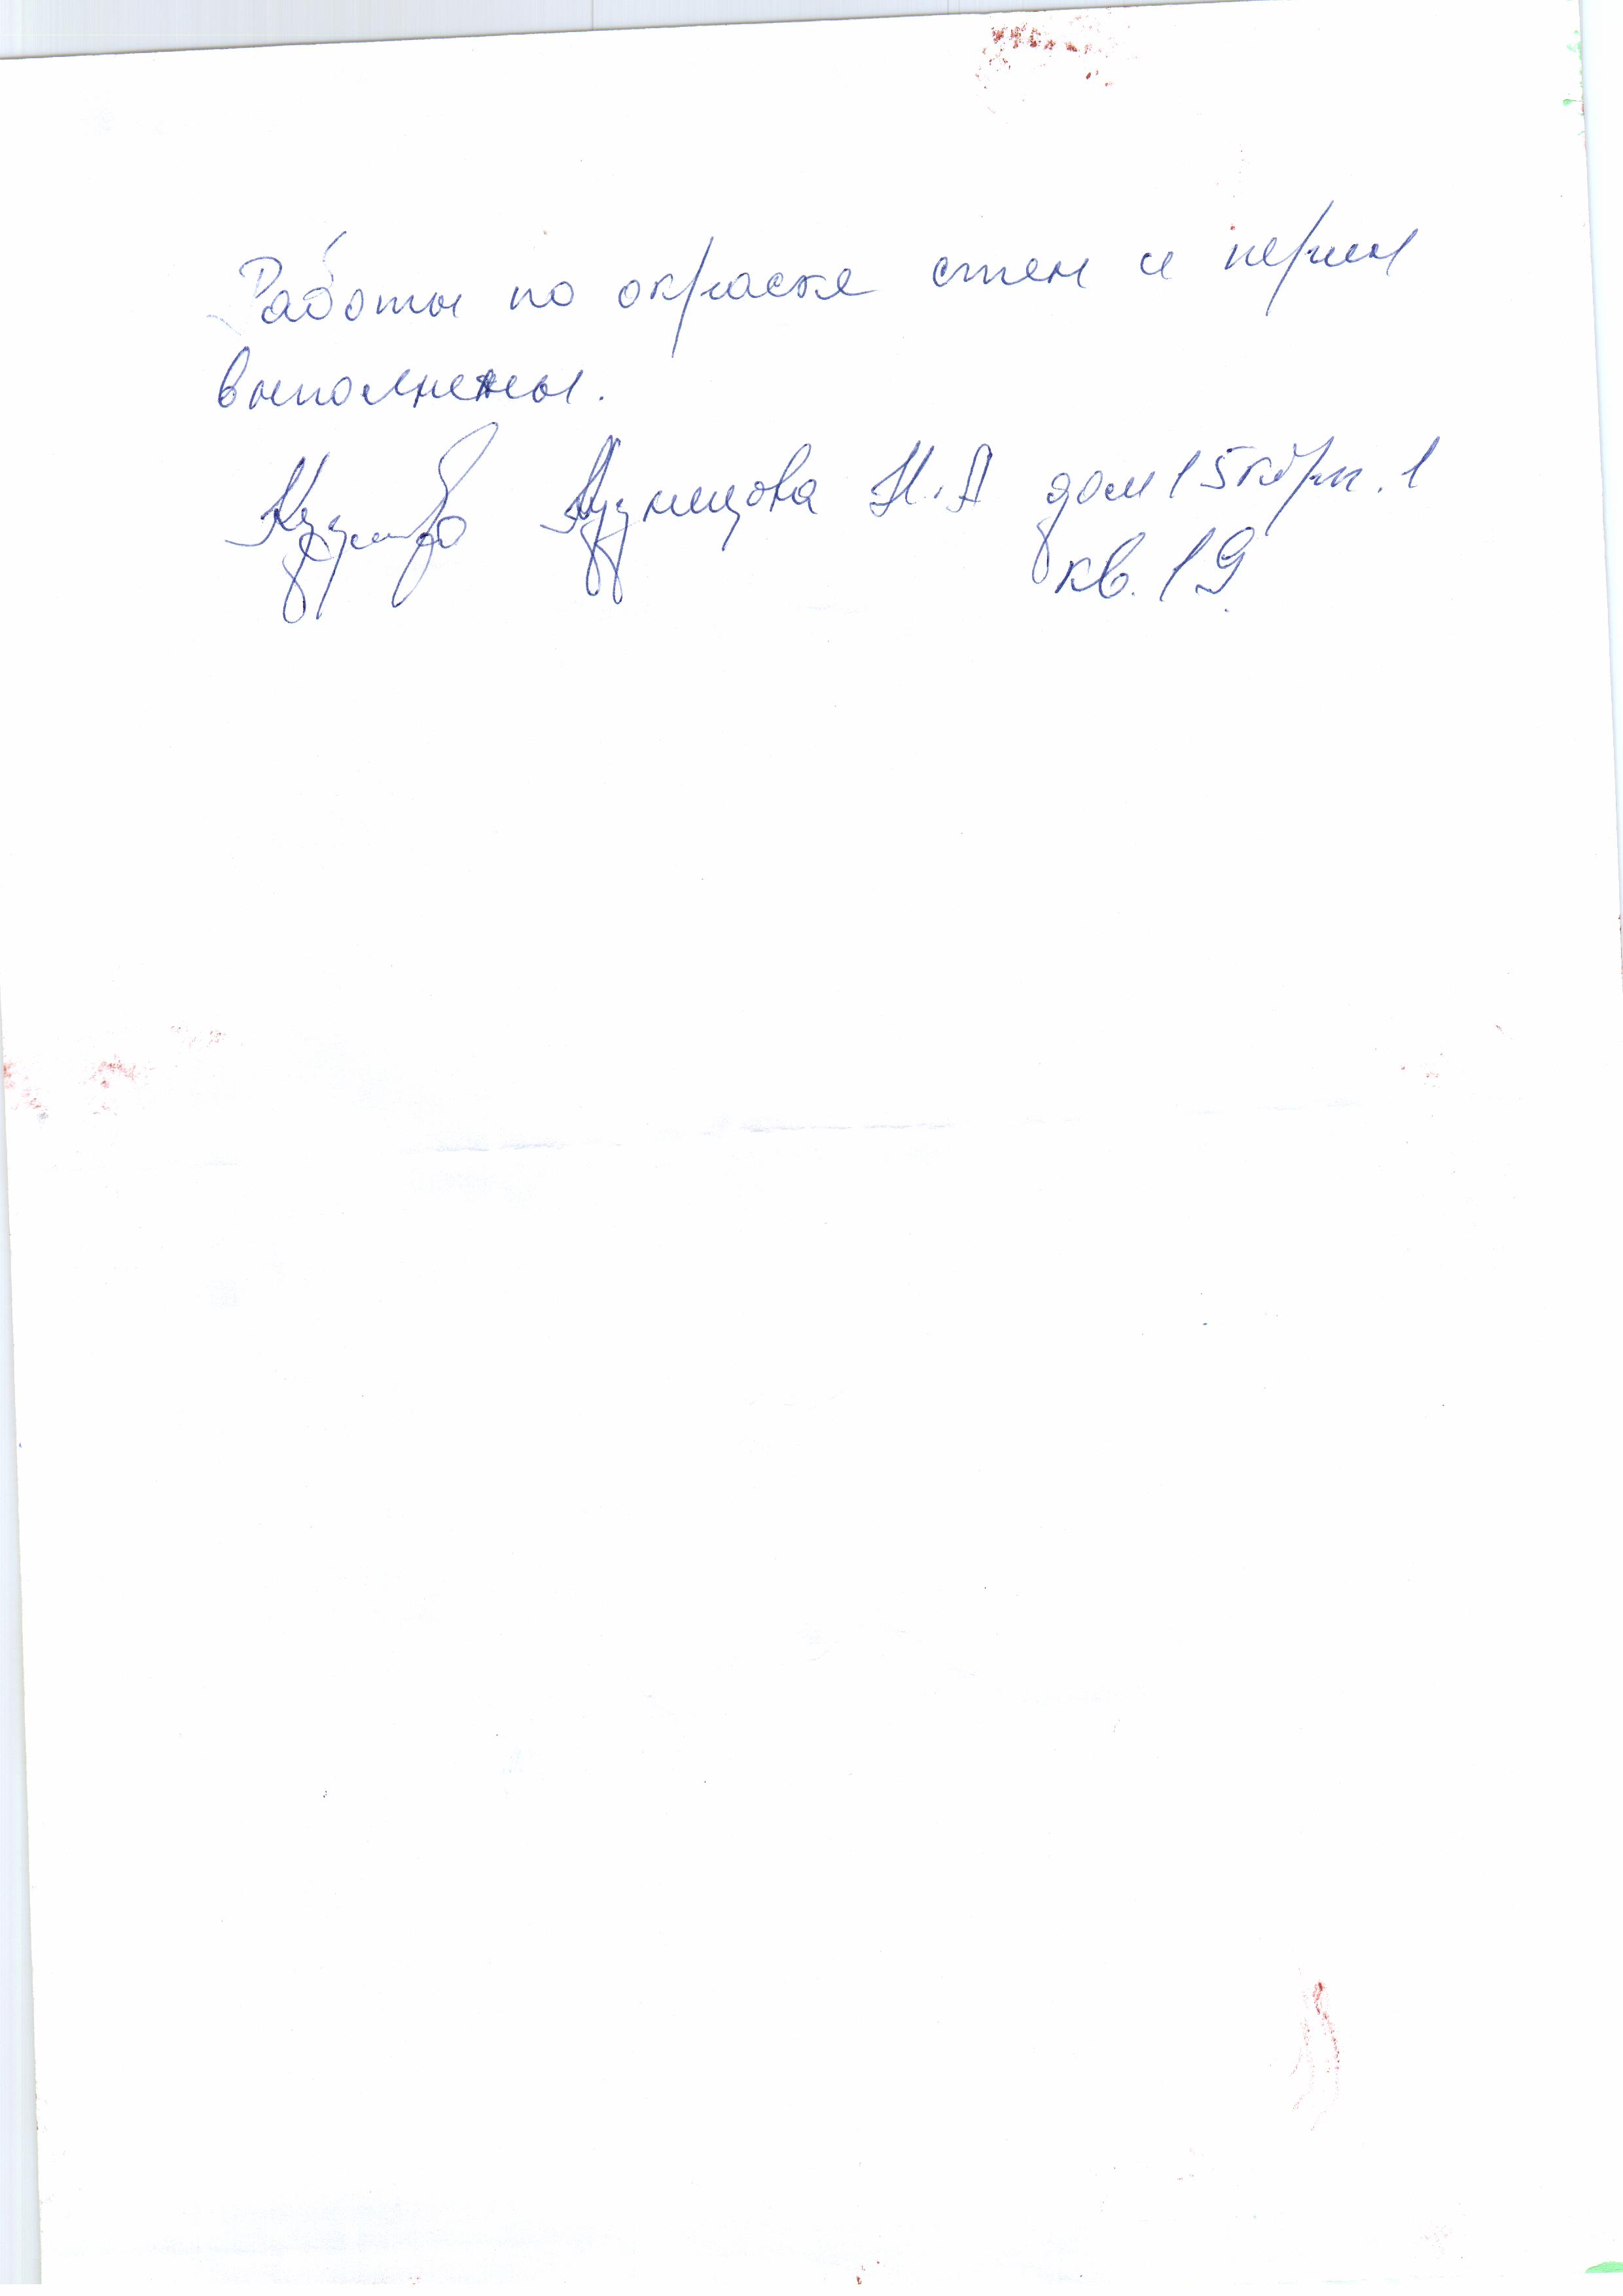 Работы по окраске стен и перил
выполнены.
Кузнецова Н.А дом 15 корп. 1
кв. 19